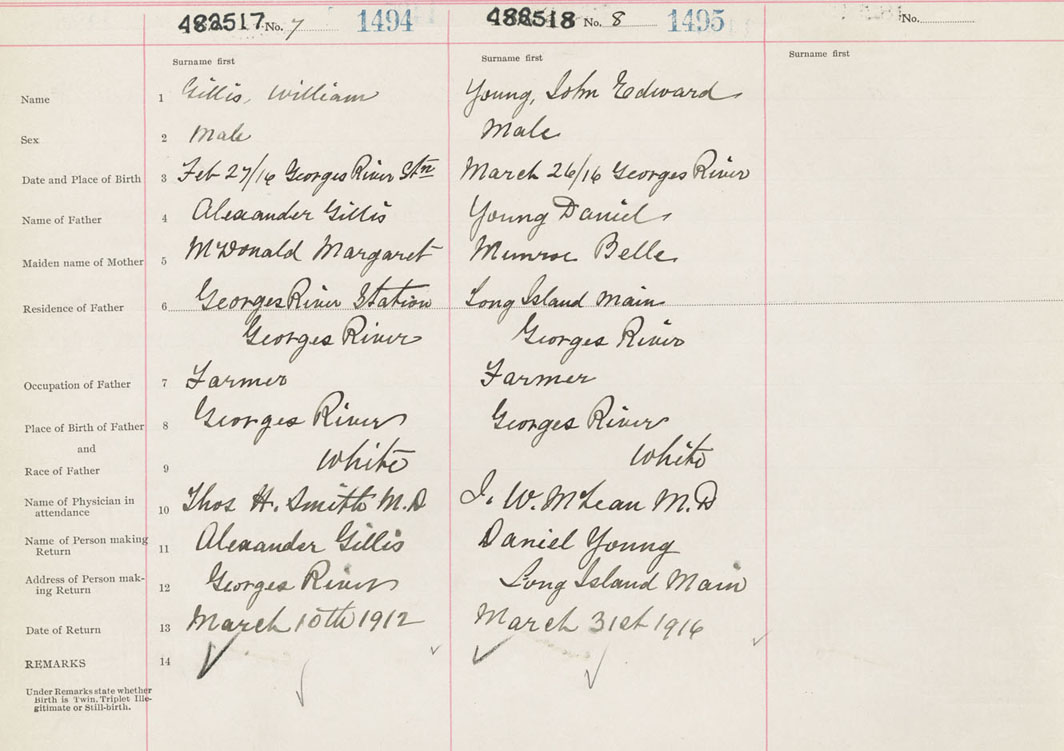 482517 No. 7 1494
488518 No. 8 1495
No.
Surname first
Surname first
Surname first
Name 1 Gillis, William
Young, John Edward
Sex 2 Male
Male
Date and Place of Birth 3 Feb 27/16 Georges River Stn
March 26/16 Georges River
Name of Father 4 Alexander Gillis
Young Daniel
Maiden name of Mother 5 McDonald Margaret
Munroe Belle
Residence of Father 6 Georges River Station
Georges River
Long Island Main
Georges River
Occupation of Father 7 Farmer
Farmer
Place of Birth of Father 8 Georges River
Georges River
and
Race of Father 9 White
White
Name of Physician in
attendance 10 Thos H. Smith M.D
J. W. McLean M.D
Name of Person making
Return 11 Alexander Gillis
Daniel Young
Address of Person mak-
ing Return 12 Georges River
Long Island Main
Date of Return 13 March 10th 1912
March 31st 1916
REMARKS 14
Under Remarks state whether
Birth is Twin, Triplet Ille-
gitimate or Still-birth.